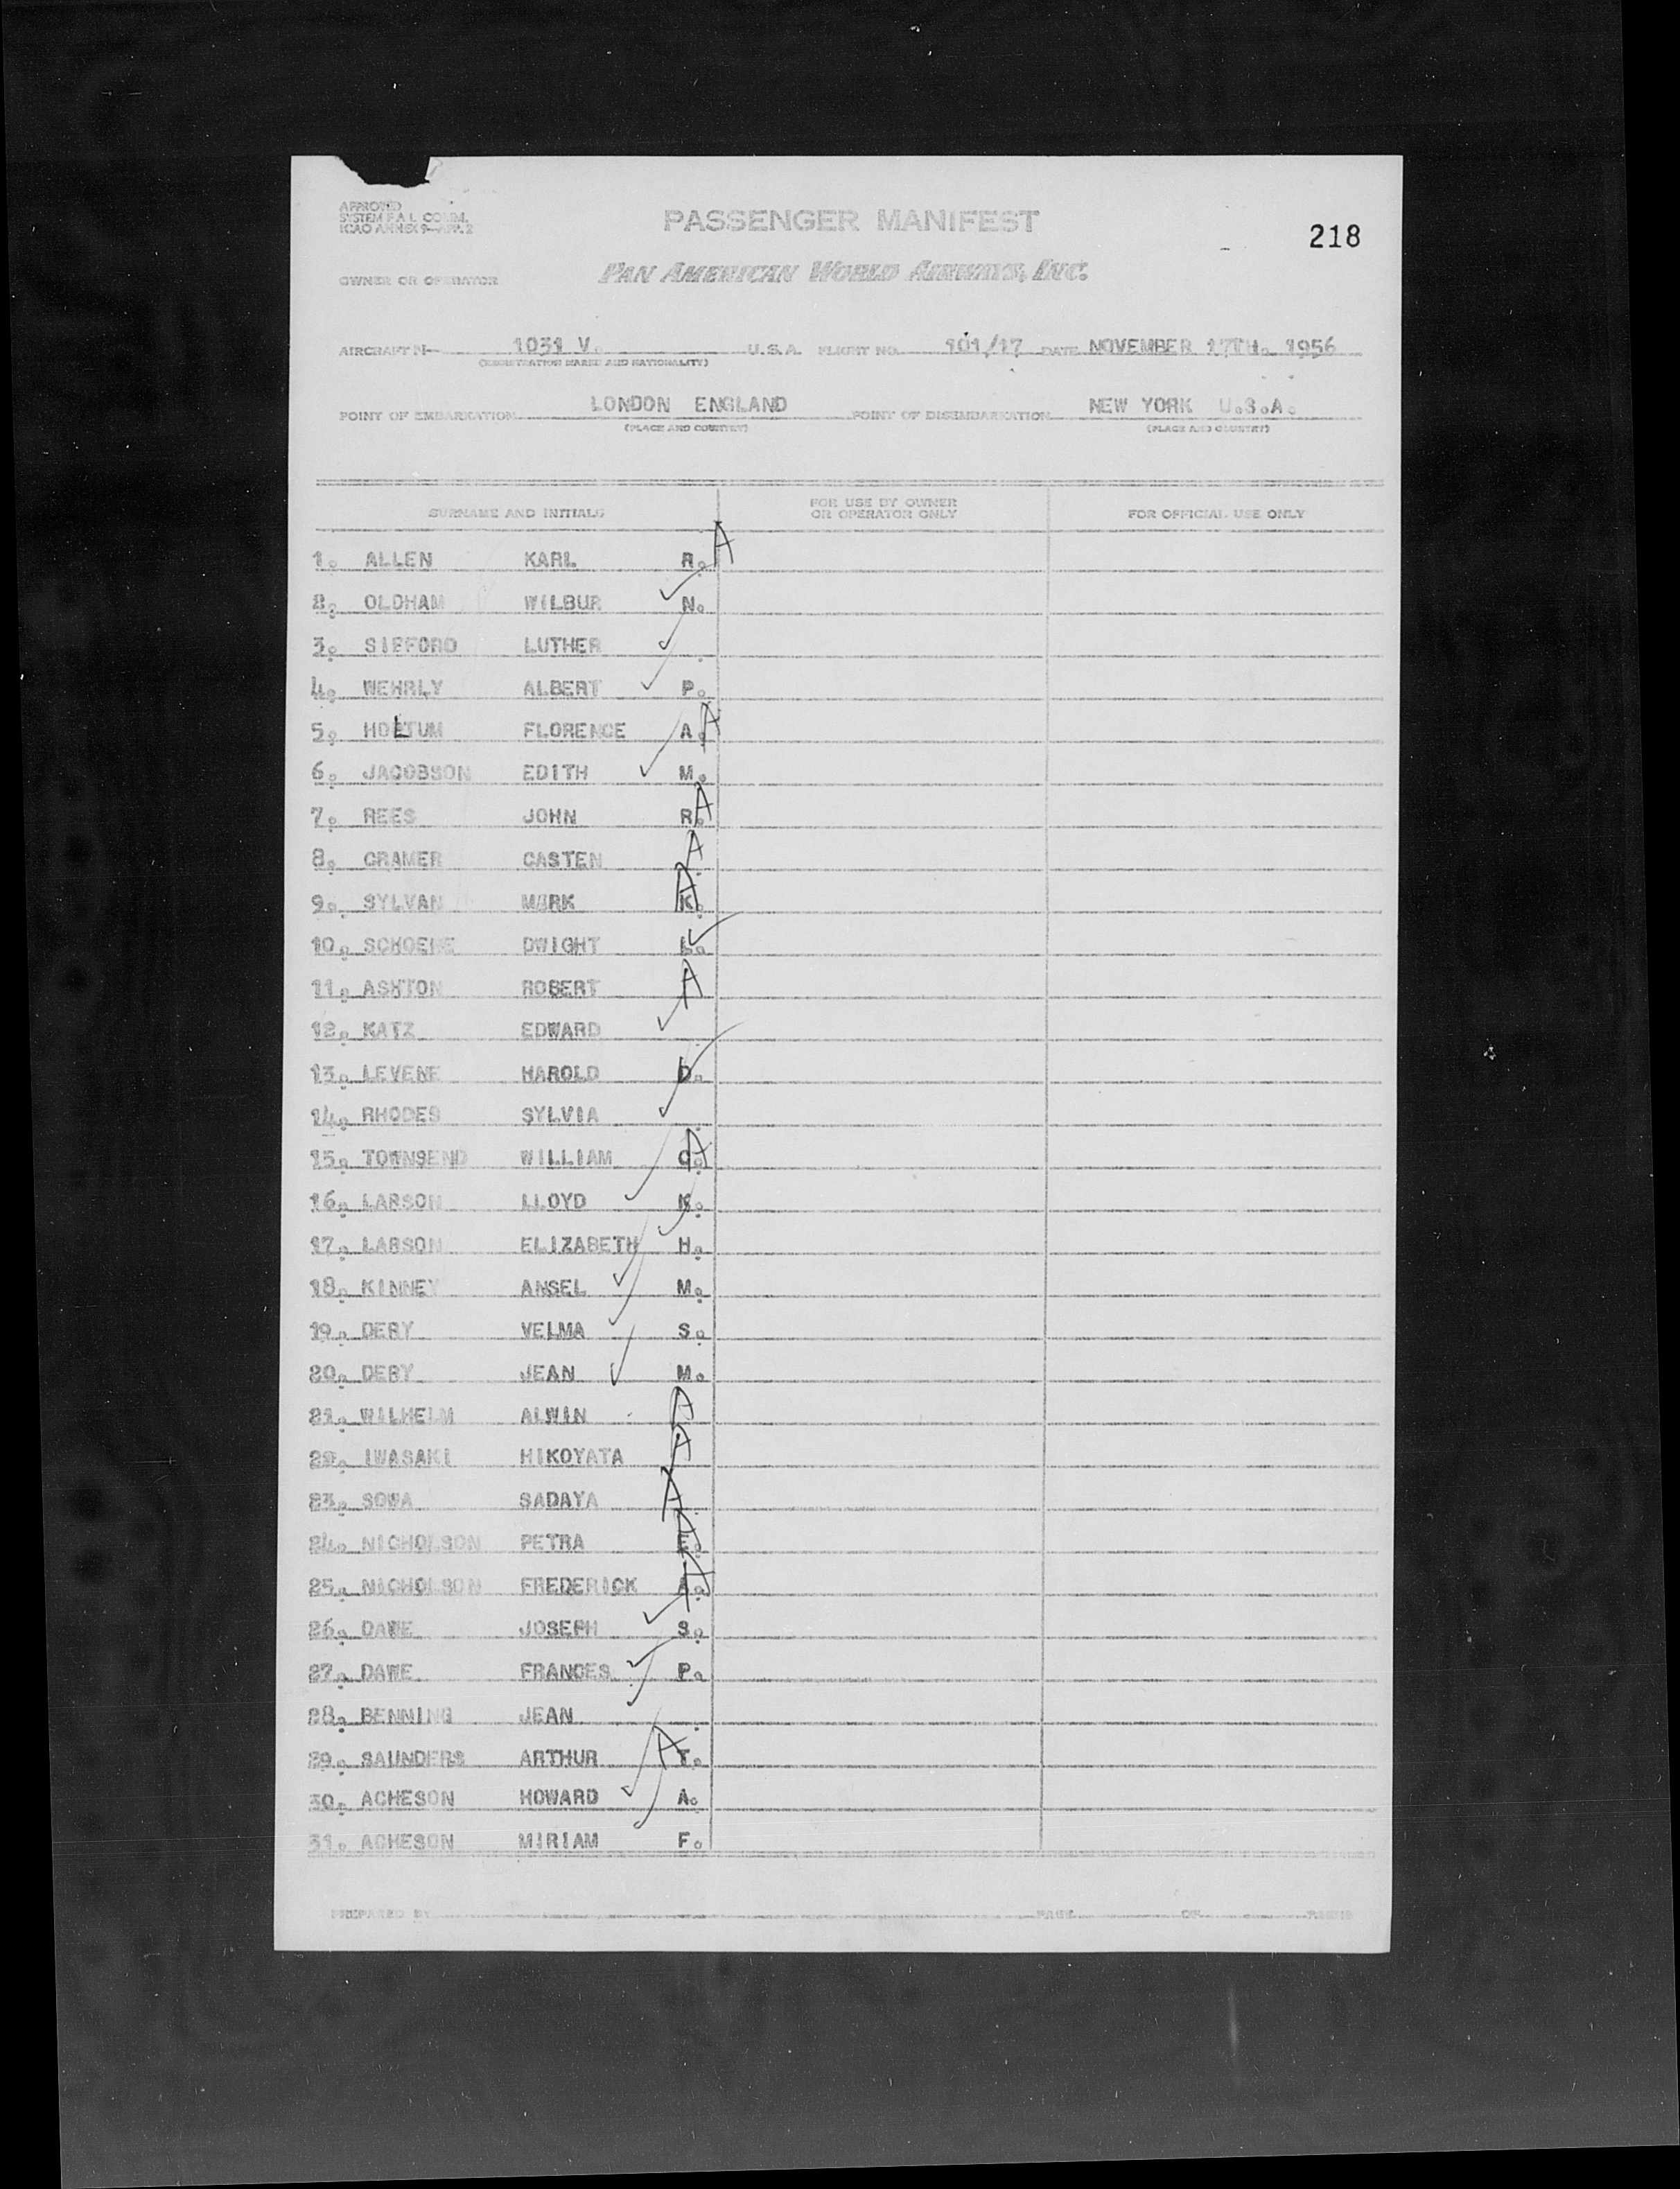 APPROVED
SYSTEM F.A.L. COMM.
ICAO ANNEX 9—APP. 2
PASSENGER MANIFEST
218
OWNER OR OPERATOR PAN AMERICAN WORLD AIRWAYS, INC.
AIRCRAFT N- 1031 V. U.S.A. FLIGHT NO. 101/17 DATE NOVEMBER 17TH. 1956
(REGISTRATION MARKS AND NATIONALITY)
POINT OF EMBARKATION LONDON ENGLAND POINT OF DISEMBARKATION NEW YORK U.S.A.
(PLACE AND COUNTRY) (PLACE AND COUNTRY)
SURNAME AND INITIALS FOR USE BY OWNER OR OPERATOR ONLY FOR OFFICIAL USE ONLY
1. ALLEN KARL R. A
2. OLDHAM WILBUR N.
3. SIFFORD LUTHER
4. WEHRLY ALBERT P.
5. HOLTUM FLORENCE A. A
6. JACOBSON EDITH M.
7. REES JOHN R. A
8. CRAMER CASTEN A
9. SYLVAN MARK K. A
10. SCHOENE DWIGHT L.
11. ASHTON ROBERT A
12. KATZ EDWARD
13. LEVENE HAROLD D.
14. RHODES SYLVIA
15. TOWNSEND WILLIAM C. A
16. LARSON LLOYD K.
17. LARSON ELIZABETH H.
18. KINNEY ANSEL M.
19. DEBY VELMA S.
20. DEBY JEAN M.
21. WILHELM ALWIN A
22. IWASAKI HIKOYATA A
23. SOWA SADAYA A
24. NICHOLSON PETRA E. A
25. NICHOLSON FREDERICK A. A
26. DAWE JOSEPH S.
27. DAWE FRANCES P.
28. BENNING JEAN
29. SAUNDERS ARTHUR T. A
30. ACHESON HOWARD A.
31. ACHESON MIRIAM F.
PREPARED BY PAGE OF PAGES